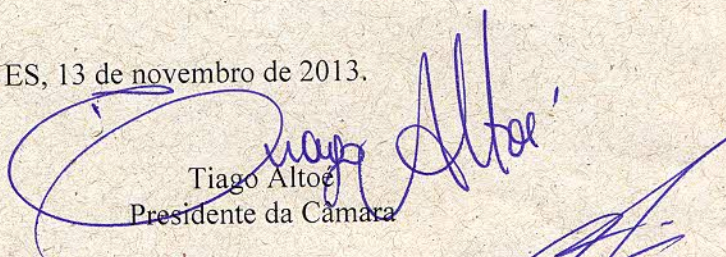 ES, 13 de novembro de 2013.
Tiago Altoé
Tiago Altoé
Presidente da Câmara